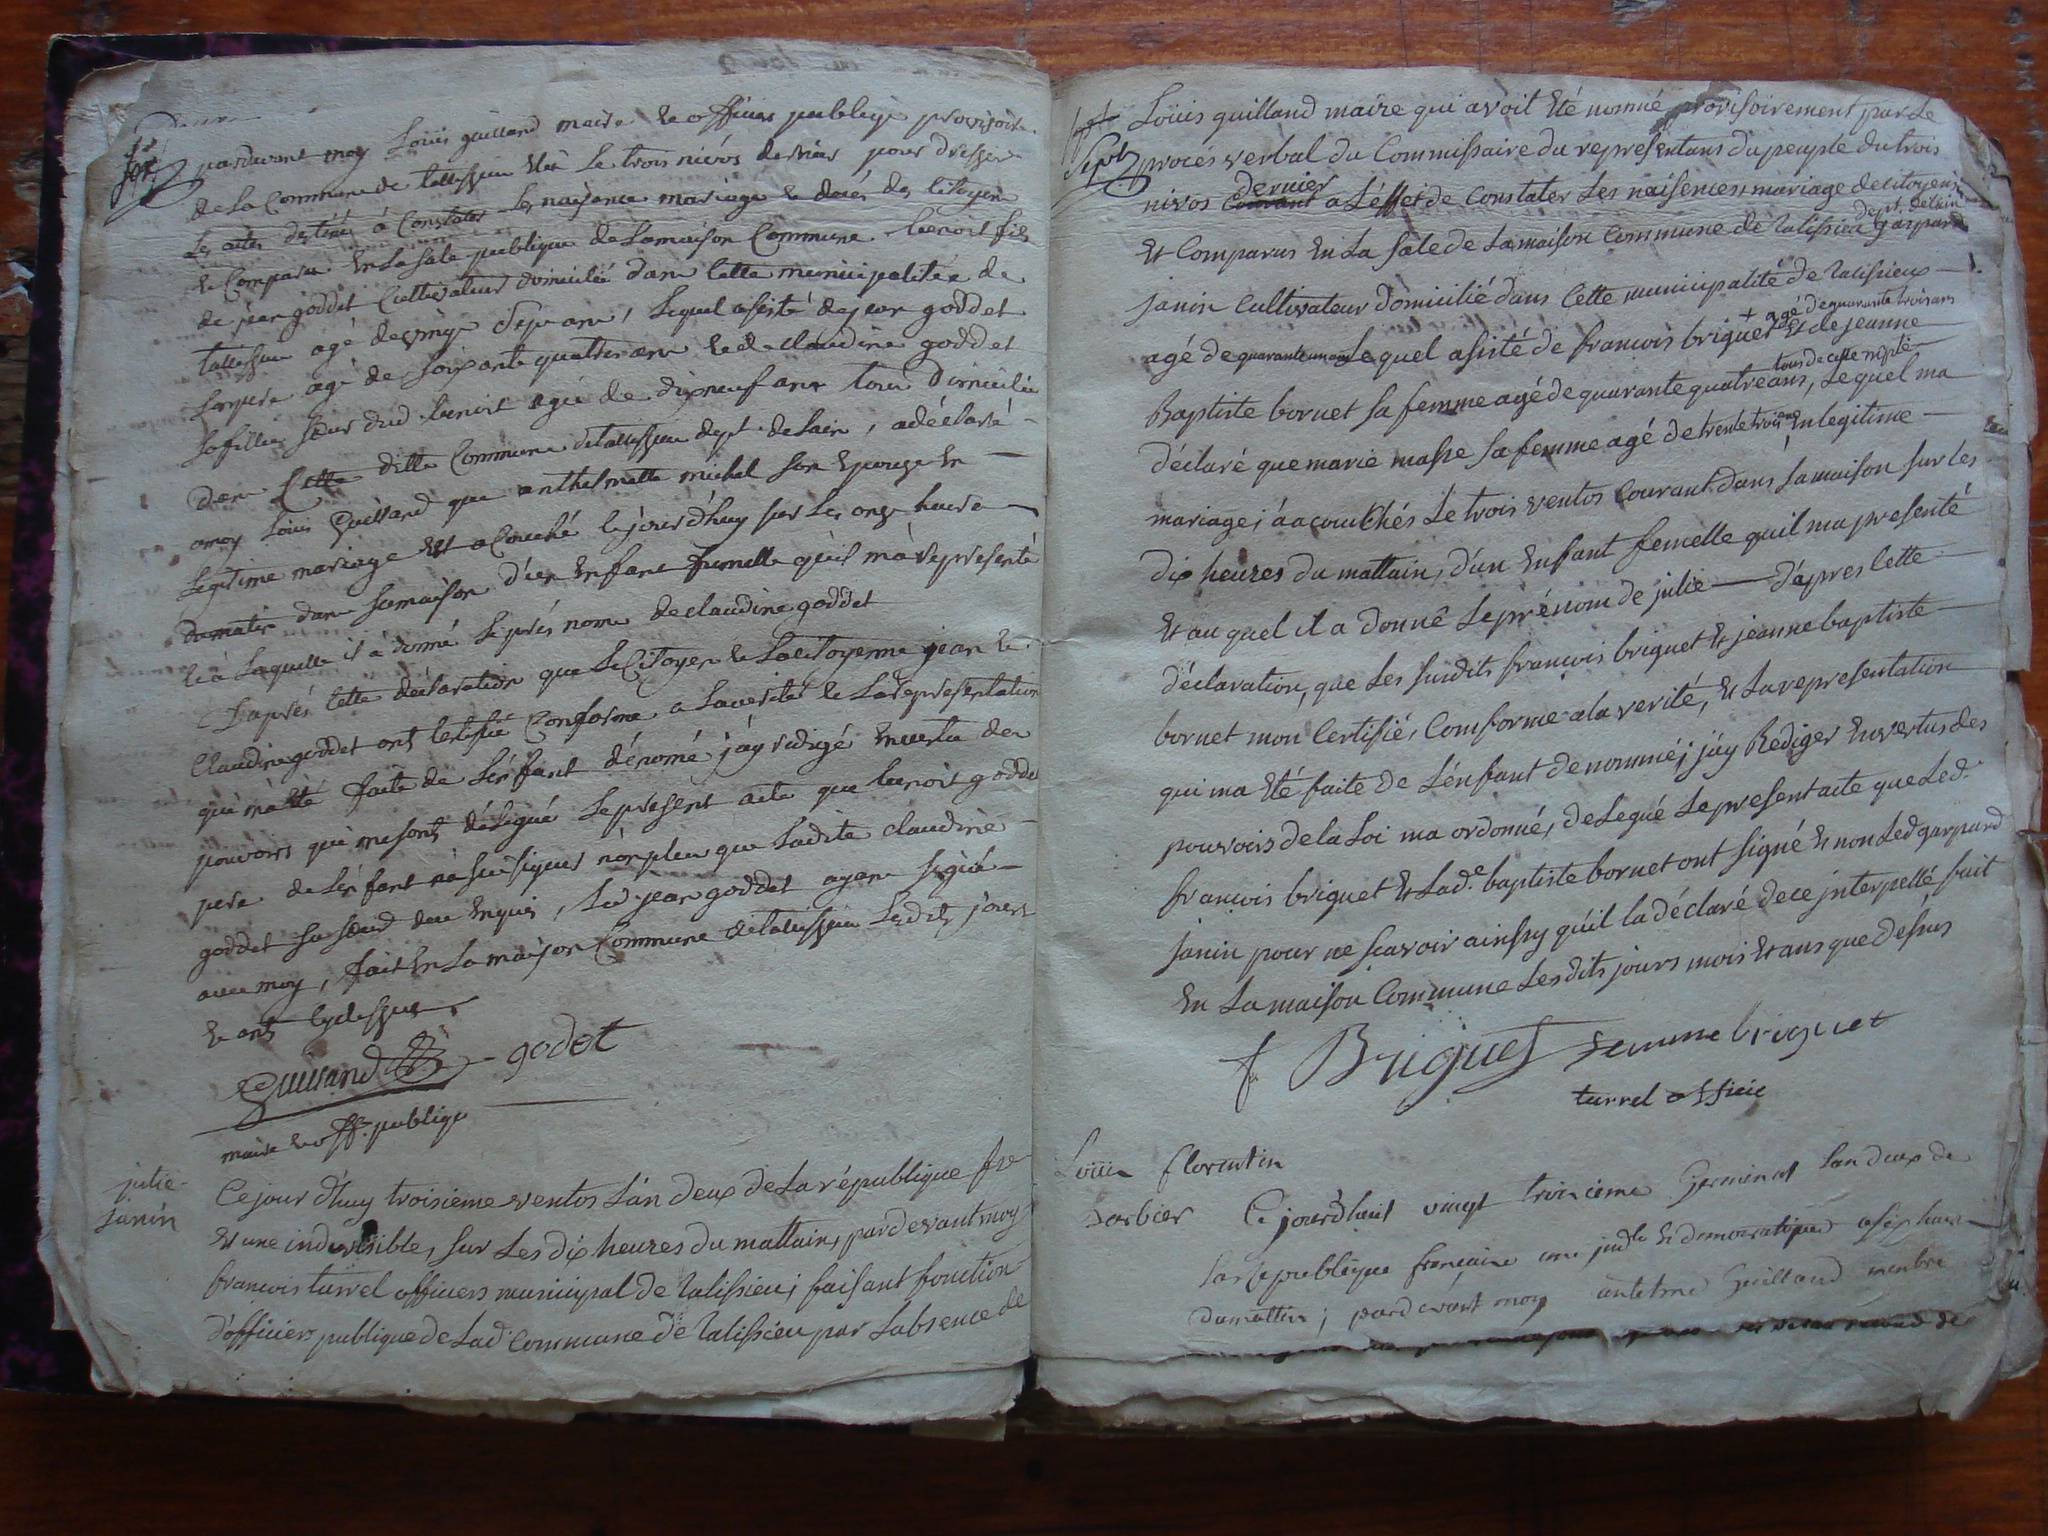 pardevant moy Louis guilland maire & officier publique provisoire
de la Commune de tallissieu élû le trois nivôs dernier pour dresser
Les actes destinés à Constater les naissance mariage & decés des Citoyen
& Comparu En La Sale publique de La maison Commune benoit fils
de jean goddet Cultivateur domicilié dans Cette municipalitée de
tallissieu agé de vingt Sept ans, Lequel assisté de jean goddet
Son pere agé de Soixante quattre ans & de claudine goddet
Sa fille Sœur dud. benoit agée de dix neuf ans tous domiciliés
dans Cette ditte Commune de tallissieu dept. de Lain, a déclaré
a moy Louis Guilland que anthelmette michel Son Epouse En
Legitime mariage Est acouché le jourd'huy sur Les onze heure
du matin dans Sa maison d'un Enfant femelle qu'il m'a représenté
& à Laquelle il à donné Le prés nom de claudine goddet
D'aprés Cette déclaration que Le Citoyen & La Citoyenne jean &
Claudine goddet ont Certifié Conforme a La verité & La representation
qui m'a Eté faite de L'enfant dénomé j'ay rédigé En vertu des
pouvoirs qui me sont délégué Le present acte que benoit goddet
pere de L'enfant n'a Scu Signer non plus que Ladite claudine
goddet Sa Sœur de ce Enquis, Led. jean goddet ayant Signé
avec moy, fait En La maison Commune de tallissieu Lesdits jours
& ant Cydessus
Guilland godet
maire & off. publique
julie
janin
Ce jour d'huy troisieme ventos L'an deux de La république fr
Et une indivisible, sur Les dix heures du mattain, pardevant moy
francois turrel officiers municipal de Talissieu; faisant fonction
d'officiers publique de Lad. commune de Talissieu par L'absence de
Sept
Louis guilland maire qui avoit Eté nommé provisoirement par Le
procés verbal du Commissaire du representans du peuple du trois
dernier
nivos Courant a L'effet de Constater Les naisences, mariage de citoyens
dept. de Lain
Et Comparus En La Sale de La maison Commune de Talissieu gaspard
janin cultivateur domicilié dans Cette municipalité de Talissieux
+ agé de quarante trois ans
agé de quarante un ans Le quel asisté de francois briguet Et de jeanne
tous de cette mplté
Baptiste bornet Sa femme agé de quarante quatre ans, Lequel ma
déclaré que marie masse Sa femme agé de trente trois ans En legitime
mariage; à acouchés Le trois ventos Courant dans Sa maison sur les
dix heures du mattain, d'un Enfant femelle quil ma presenté
Et au quel il a donné Le prénom de julie — d'apres Cette
déclaration, que Les Susdits francois briguet Et jeanne baptiste
bornet mon Certifié, Comforme a la verité, Et La representation
qui ma Eté faite de L'énfant denommé; j'ay Rediger En vertus des
pouvoirs de la Loi ma ordonné, deLegué Le present acte que Led.
francois briguet Et Lad.e baptiste bornet ont Signé Et non Led gaspard
janin pour ne scavoir ainssy quil la déclaré de ce interpellé fait
En La maison Commune Lesdits jours mois Et ans que dessus
f Briguet femme briguet
turrel officié
Louis florentin
Barbier Ce jourd'huit vingt troisieme Germinal Lan deux de
La republique francaise une jndle Et democratique a six heures
du mattin; pardevant moy antelme Guilland membre